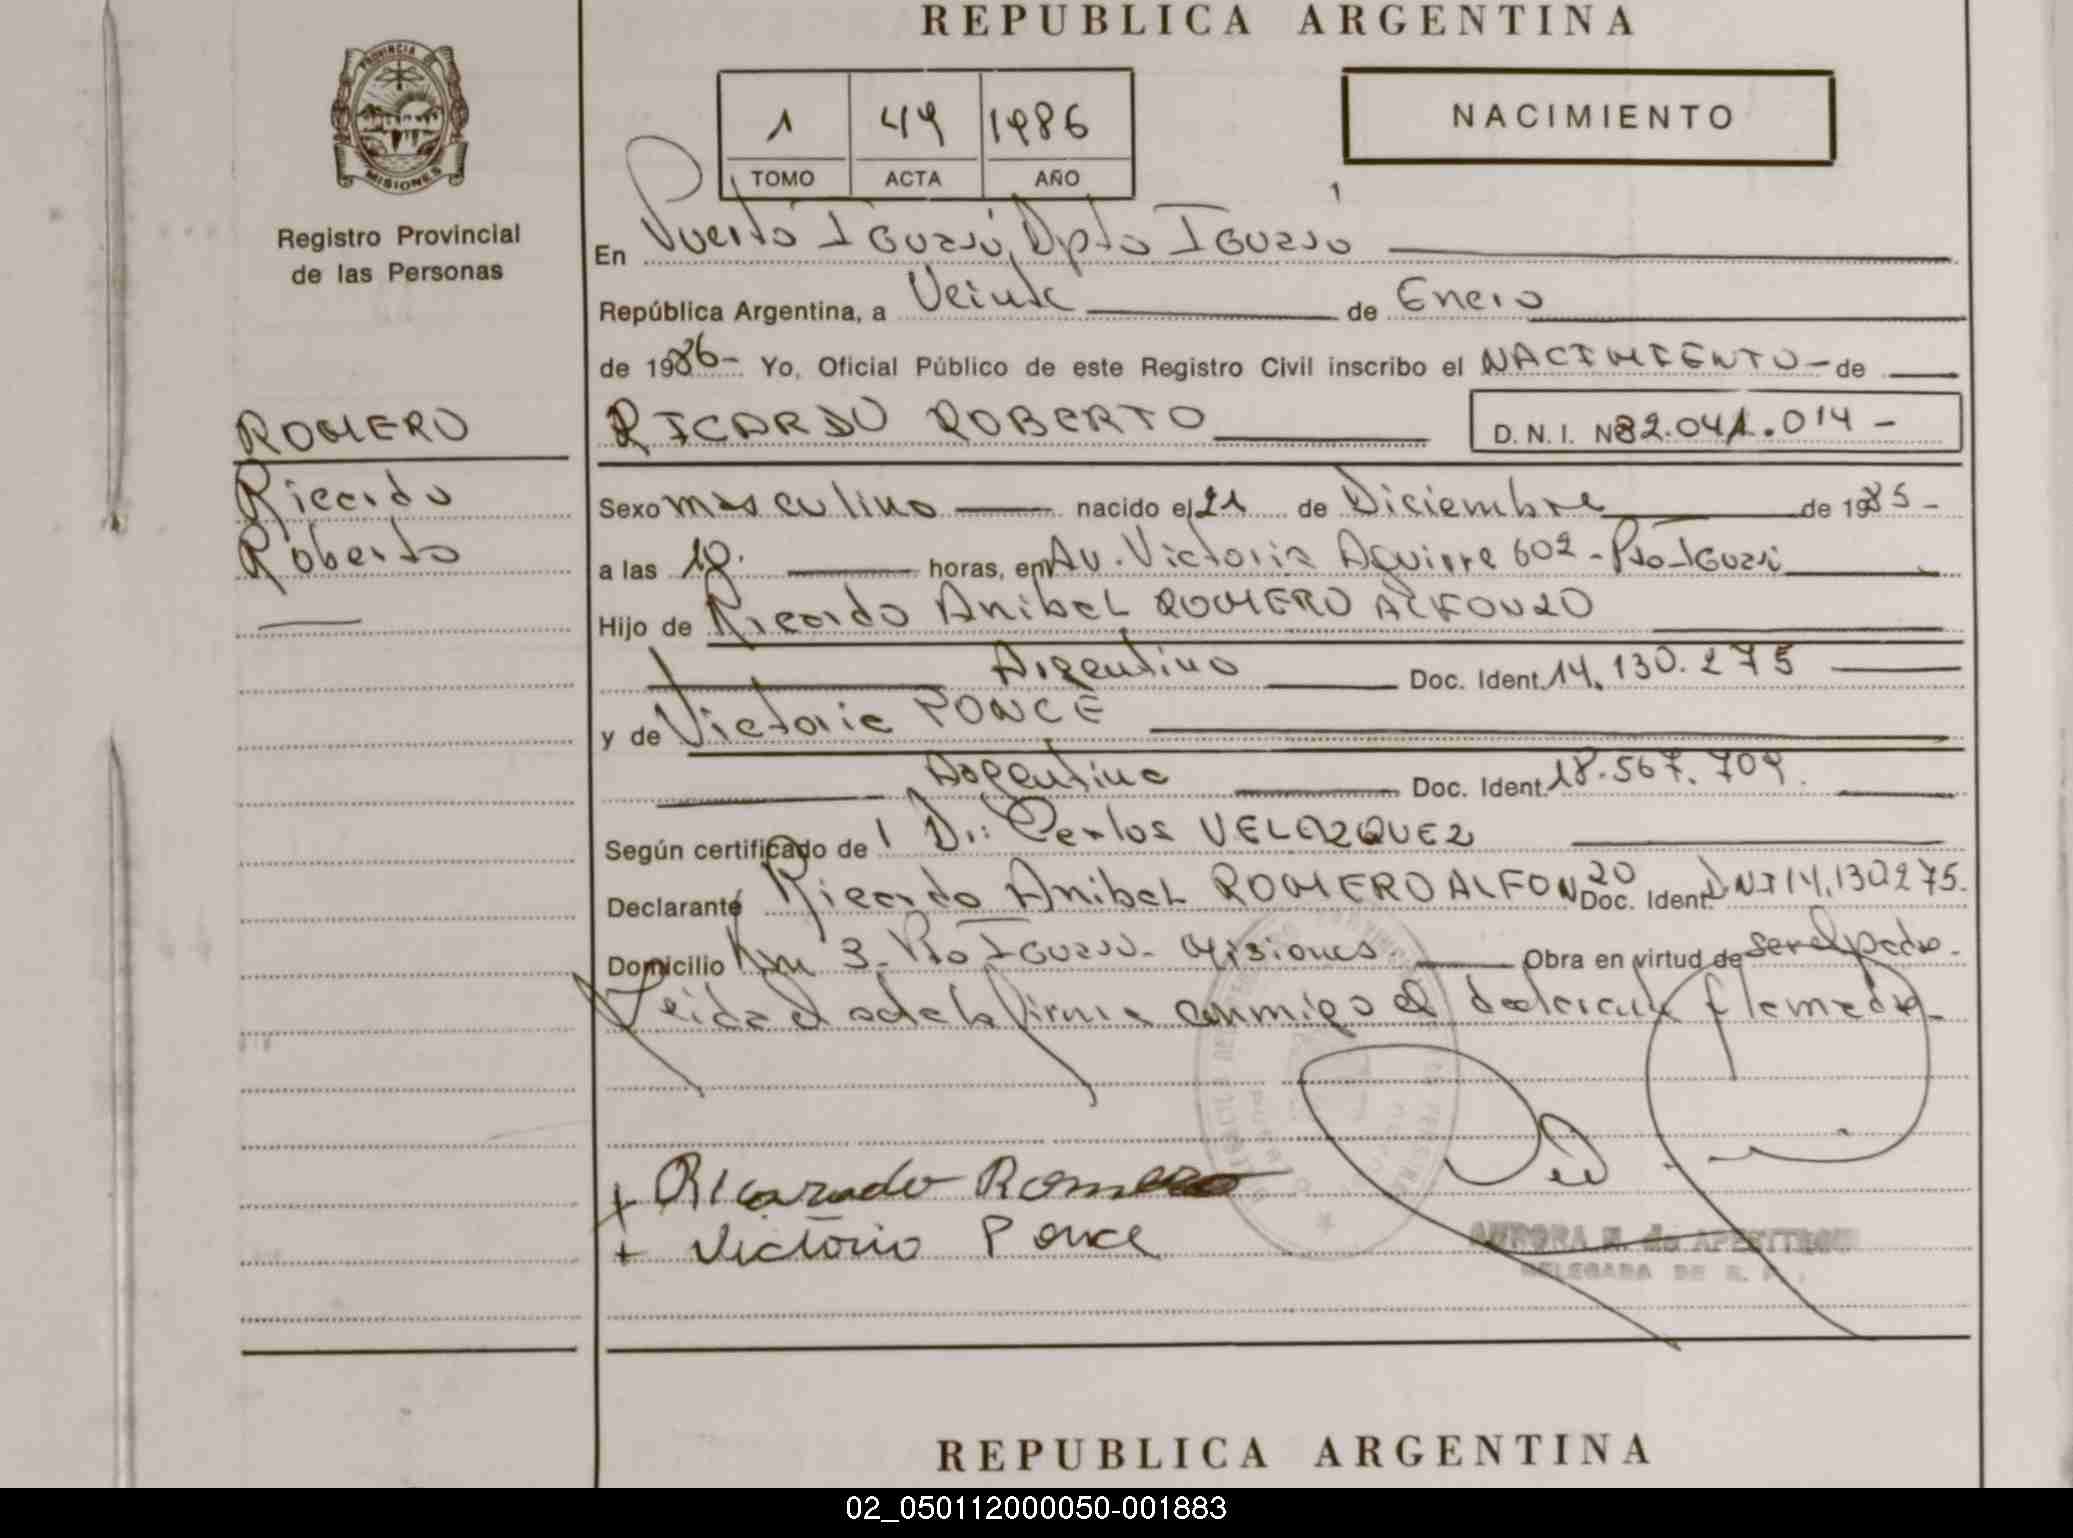 REPUBLICA ARGENTINA
PROVINCIA DE
MISIONES
Registro Provincial
de las Personas
1 49 1986
TOMO ACTA AÑO
NACIMIENTO
En Puerto Iguazú, Dpto Iguazú
República Argentina, a Veinte de Enero
de 1986- Yo, Oficial Público de este Registro Civil inscribo el NACIMIENTO - de
ROMERO
Ricardo
Roberto
RICARDO ROBERTO D. N. I. Nº 32.041.014 -
Sexo masculino nacido el 21 de Diciembre de 1985 -
a las 10. horas, en Av. Victoria Aguirre 602 - Pto Iguazú
Hijo de Ricardo Anibal ROMERO ALFONZO
Argentino Doc. Ident. 14.130.275
y de Victoria PONCE
Argentina Doc. Ident. 18.567.709.
Según certificado de Dr: Carlos VELAZQUEZ
Declarante Ricardo Anibal ROMERO ALFONZO Doc. Ident. DNI 14.130.275.
Domicilio Km 3 - Pto Iguazú - Misiones. Obra en virtud de ser el padre -
Leida el acta la firma conmigo el declarante y la madre -
+ Ricardo Romero
+ Victoria Ponce
AURORA
DELEGADA DE R. P.
REPUBLICA ARGENTINA
02_050112000050-001883